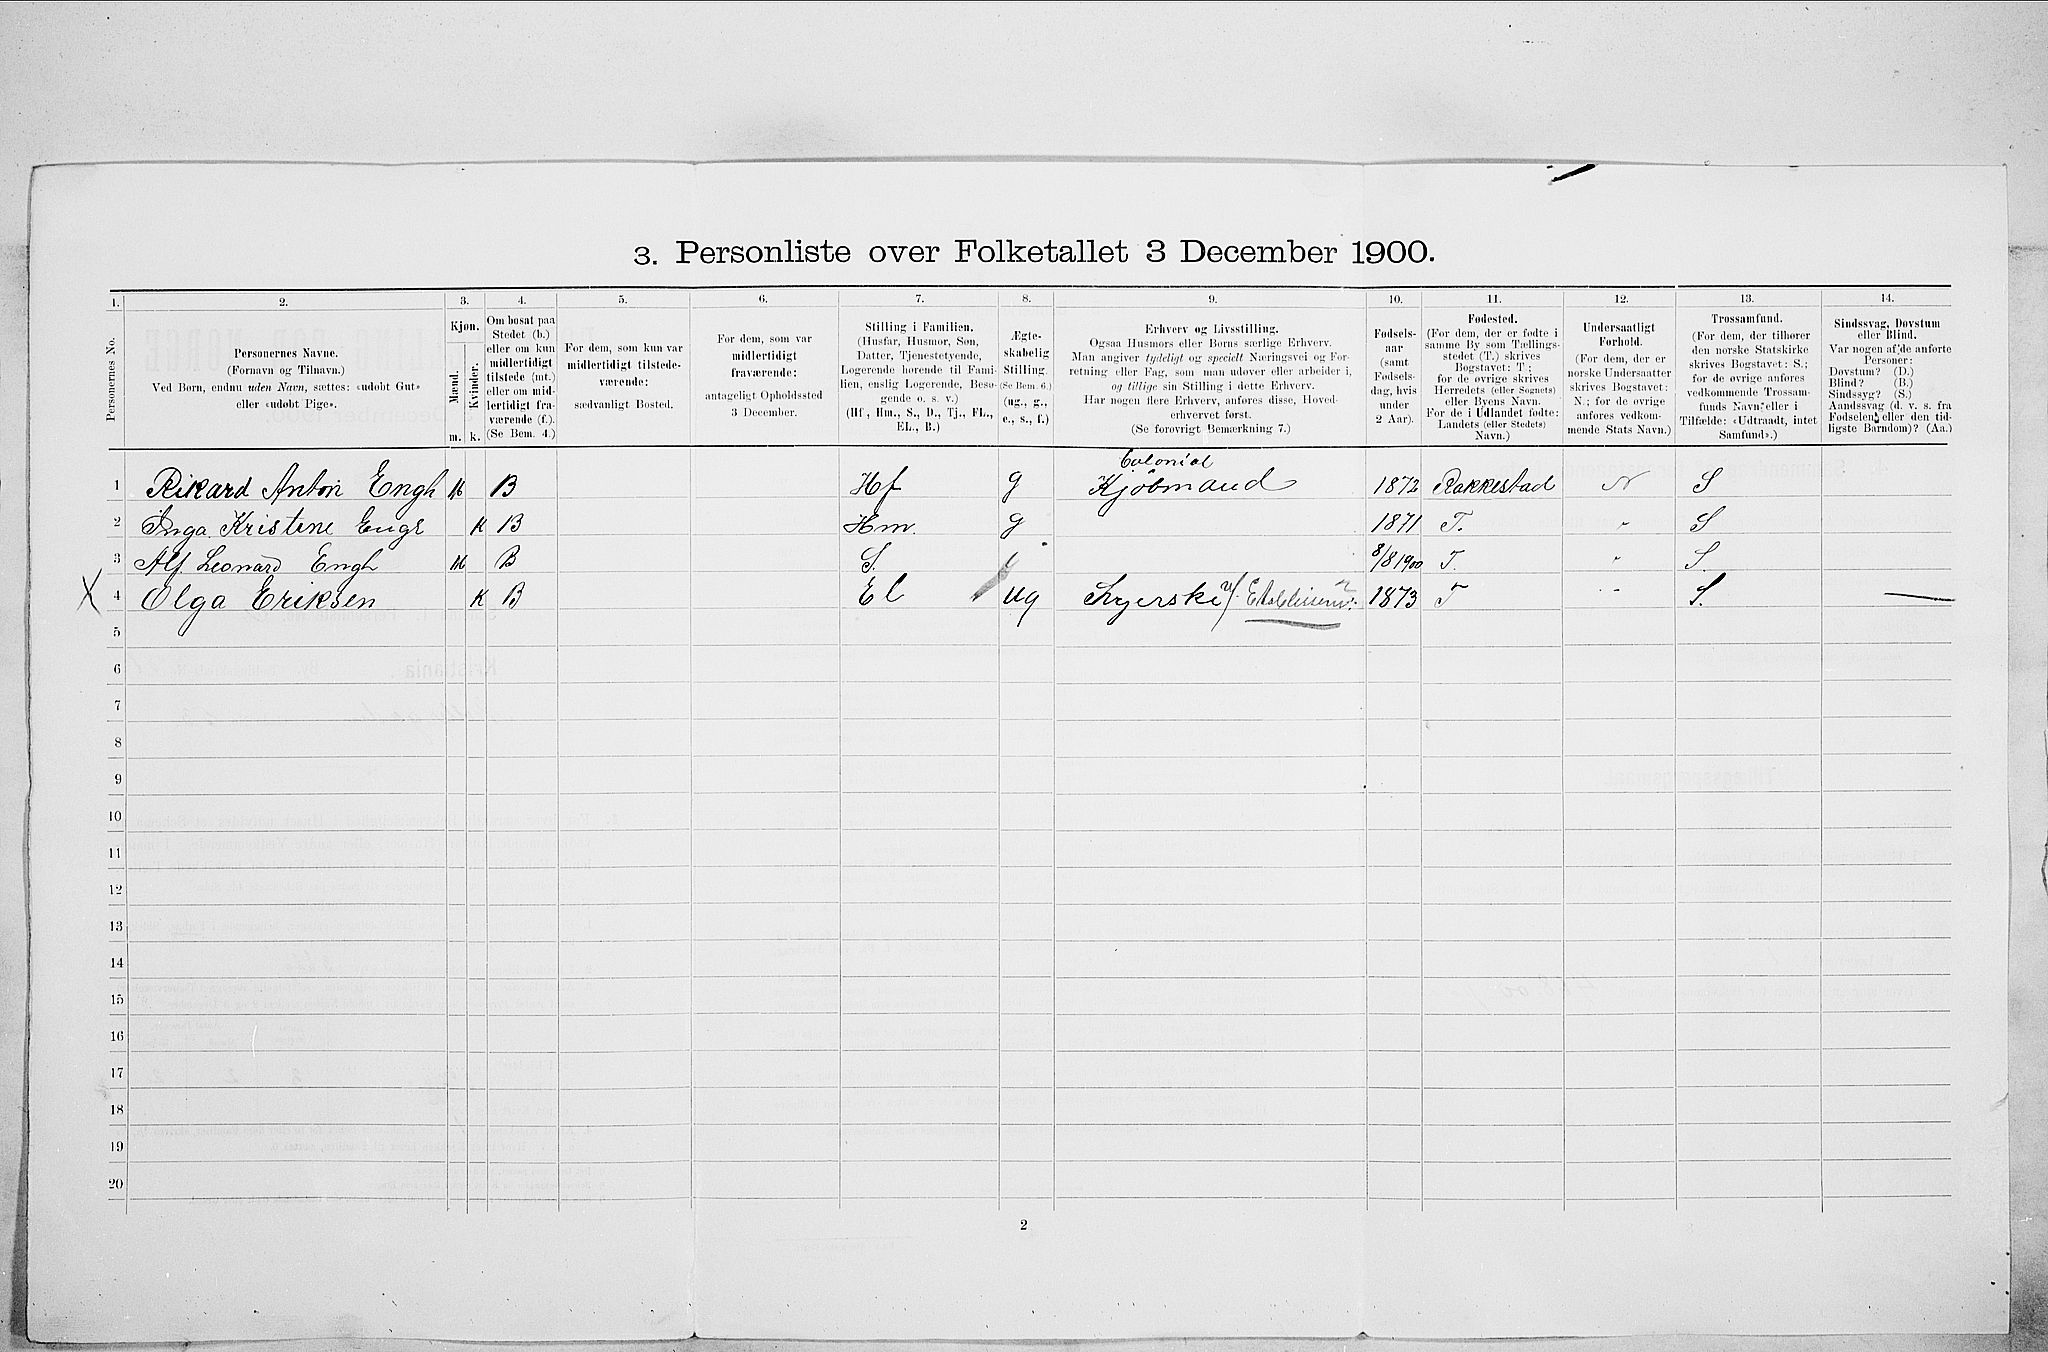 3. Personliste over Folketallet 3 December 1900.
1. 2. 3. 4. 5. 6. 7. 8. 9. 10. 11. 12. 13. 14.
Personernes No.
Personernes Navne.
(Fornavn og Tilnavn.)
Ved Børn, endnu uden Navn, sættes: «udøbt Gut»
eller «udøbt Pige».
Kjøn.
Mænd. Kvinder.
m. k.
Om bosat paa
Stedet (b.)
eller om kun
midlertidigt
tilstede (mt.)
eller om mid-
lertidigt fra-
værende (f.).
(Se Bem. 4.)
For dem, som kun var
midlertidigt tilstede-
værende:
sædvanligt Bosted.
For dem, som var
midlertidigt
fraværende:
antageligt Opholdssted
3 December.
Stilling i Familien.
(Husfar, Husmor, Søn,
Datter, Tjenestetyende,
Logerende hørende til Fami-
lien, enslig Logerende, Besø-
gende o. s. v.)
(Hf, Hm., S., D., Tj., FL.,
EL., B.)
Ægte-
skabelig
Stilling.
(Se Bem. 6.)
(ug., g.,
e., s., f.)
Erhverv og Livsstilling.
Ogsaa Husmors eller Børns særlige Erhverv.
Man angiver tydeligt og specielt Næringsvei og For-
retning eller Fag, som man udøver eller arbeider i,
og tillige sin Stilling i dette Erhverv.
Har nogen flere Erhverv, anføres disse, Hoved-
erhvervet først.
(Se forøvrigt Bemærkning 7.)
Fødsels-
aar
(samt
Fødsels-
dag, hvis
under
2 Aar).
Fødested.
(For dem, der er fødte i
samme By som Tællings-
stedet (T.) skrives
Bogstavet: T;
for de øvrige skrives
Herredets (eller Sognets)
eller Byens Navn.
For de i Udlandet fødte:
Landets (eller Stedets)
Navn.)
Undersaatligt
Forhold.
(For dem, der er
norske Undersaatter
skrives Bogstavet:
N.; for de øvrige
anføres vedkom-
mende Stats Navn.)
Trossamfund.
(For dem, der tilhører
den norske Statskirke
skrives Bogstavet: S.;
for de øvrige anføres
vedkommende Trossam-
funds Navn, eller i
Tilfælde: «Udtraadt, intet
Samfund».)
Sindssvag, Døvstum
eller Blind.
Var nogen af de anførte
Personer:
Døvstum? (D.)
Blind? (B.)
Sindssyg? (S.)
Aandssvag (d. v. s. fra
Fødselen eller den tid-
ligste Barndom)? (Aa.)
Colonial
1 Rikard Anton Engh M B Hf g Kjöbmand 1872 Rakkestad N S
2 Inga Kristine Engh K B Hm. g 1871 T. " S
3 Alf Leonard Engh M B S. 8/8 1900 T. " S.
X 4 Olga Eriksen K B El ug 1873 T " S.
5
6
7
8
9
10
11
12
13
14
15
16
17
18
19
20
2